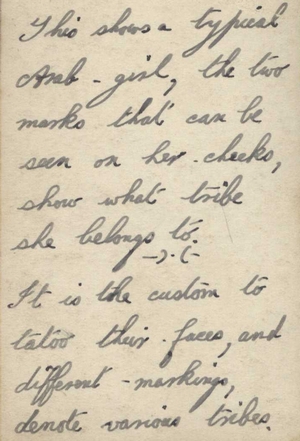 This shows a typical
Arab - girl, the two
marks that can be
seen on her cheeks,
show what tribe
she belongs to.
-).(-
It is the custom to
tatoo their faces, and
different - markings,
denote various tribes.